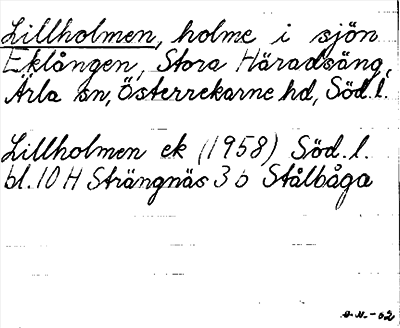 Lillholmen, holme i sjön
Eklången, Stora Häradsäng,
Ärla sn, Österrekarne hd, Söd.l.
Lillholmen ek (1958) Söd.l.
bl. 10 H Strängnäs 3 b Stålbåga